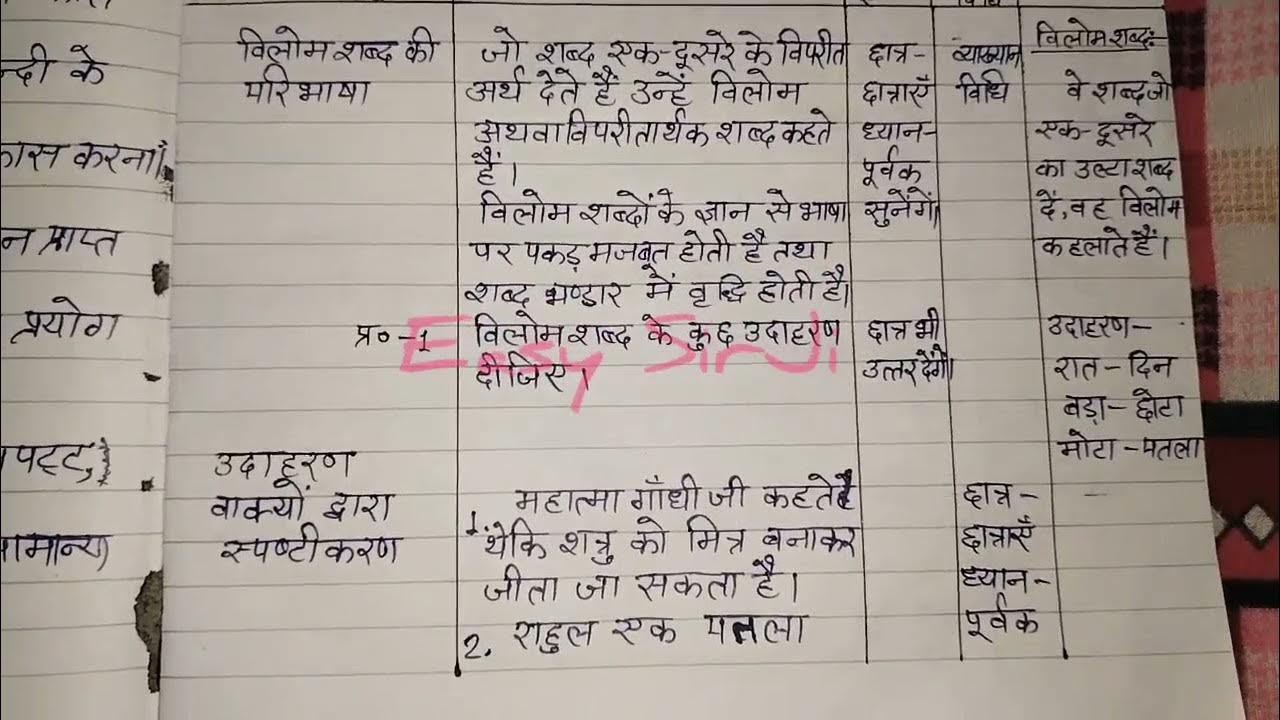 न्दी के
कास करना।
न प्राप्त
प्रयोग
सामान्य
विधि
विलोम शब्द की
परिभाषा
प्र०-1
उदाहरण
वाक्यों द्वारा
स्पष्टीकरण
जो शब्द एक-दूसरे के विपरीत
अर्थ देते हैं उन्हें विलोम
अथवा विपरीतार्थक शब्द कहते
हैं।
विलोम शब्दों के ज्ञान से भाषा
पर पकड़ मजबूत होती है तथा
शब्द भण्डार में वृद्धि होती है।
विलोम शब्द के कुछ उदाहरण
दीजिए।
महात्मा गाँधी जी कहते
1. थे कि शत्रु को मित्र बनाकर
जीता जा सकता है।
2. राहुल एक पतला
छात्र-
छात्राएँ
ध्यान-
पूर्वक
सुनेंगें।
छात्र भी
उत्तर देंगे।
व्याख्यान
विधि
छात्र-
छात्राएँ
ध्यान-
पूर्वक
विलोम शब्द:-
वे शब्द जो
एक-दूसरे
का उल्टा शब्द
दें, वह विलोम
कहलाते हैं।
उदाहरण-
रात - दिन
बड़ा - छोटा
मोटा - पतला
Easy Sir Ji